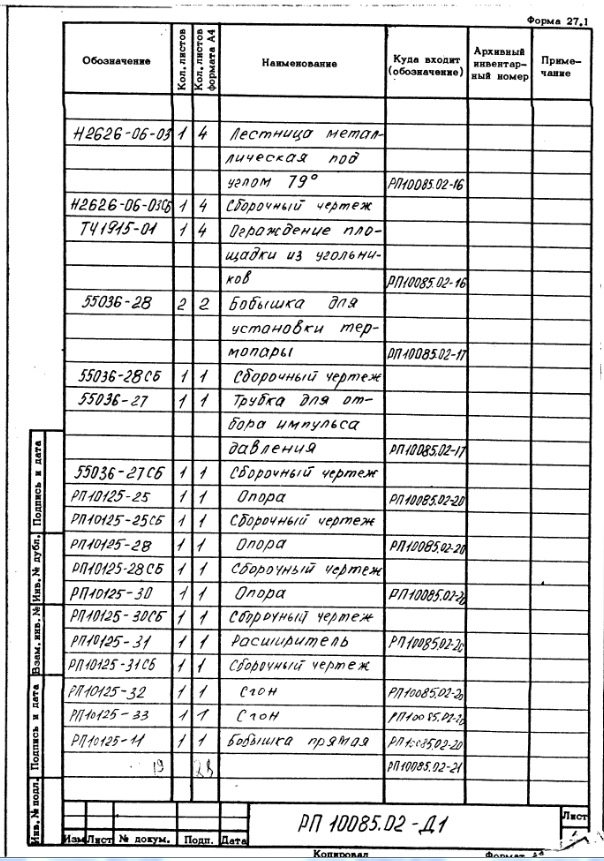 Форма 27.1
Обозначение Кол. листов Кол. листов формата А4 Наименование Куда входит (обозначение) Архивный инвентарный номер Примечание
Н2626-06-03 1 4 Лестница метал-
лическая под
углом 79° РП10085.02-16
Н2626-06-03СБ 1 4 Сборочный чертеж
ТЧ1915-01 1 4 Ограждение пло-
щадки из угольни-
ков РП10085.02-16
55036-28 2 2 Бобышка для
установки тер-
мопары РП10085.02-17
55036-28СБ 1 1 Сборочный чертеж
55036-27 1 1 Трубка для от-
бора импульса
давления РП10085.02-17
55036-27СБ 1 1 Сборочный чертеж
РП10125-25 1 1 Опора РП10085.02-20
РП10125-25СБ 1 1 Сборочный чертеж
РП10125-28 1 1 Опора РП10085.02-20
РП10125-28СБ 1 1 Сборочный чертеж
РП10125-30 1 1 Опора РП10085.02-20
РП10125-30СБ 1 1 Сборочный чертеж
РП10125-31 1 1 Расширитель РП10085.02-20
РП10125-31СБ 1 1 Сборочный чертеж
РП10125-32 1 1 Сгон РП10085.02-20
РП10125-33 1 1 Сгон РП10085.02-20
РП10125-11 1 1 Бобышка прямая РП10085.02-20
19 РП10085.02-21
Инв. № подл. Подпись и дата Взам. инв. № Инв. № дубл. Подпись и дата
РП 10085.02-Д1
Лист
Изм Лист № докум. Подп. Дата
Копировал Формат А4